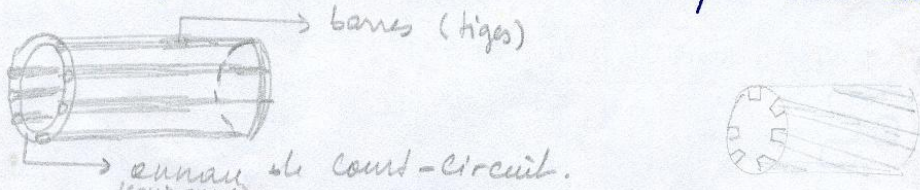 barres (tiges)
anneau de court-circuit.